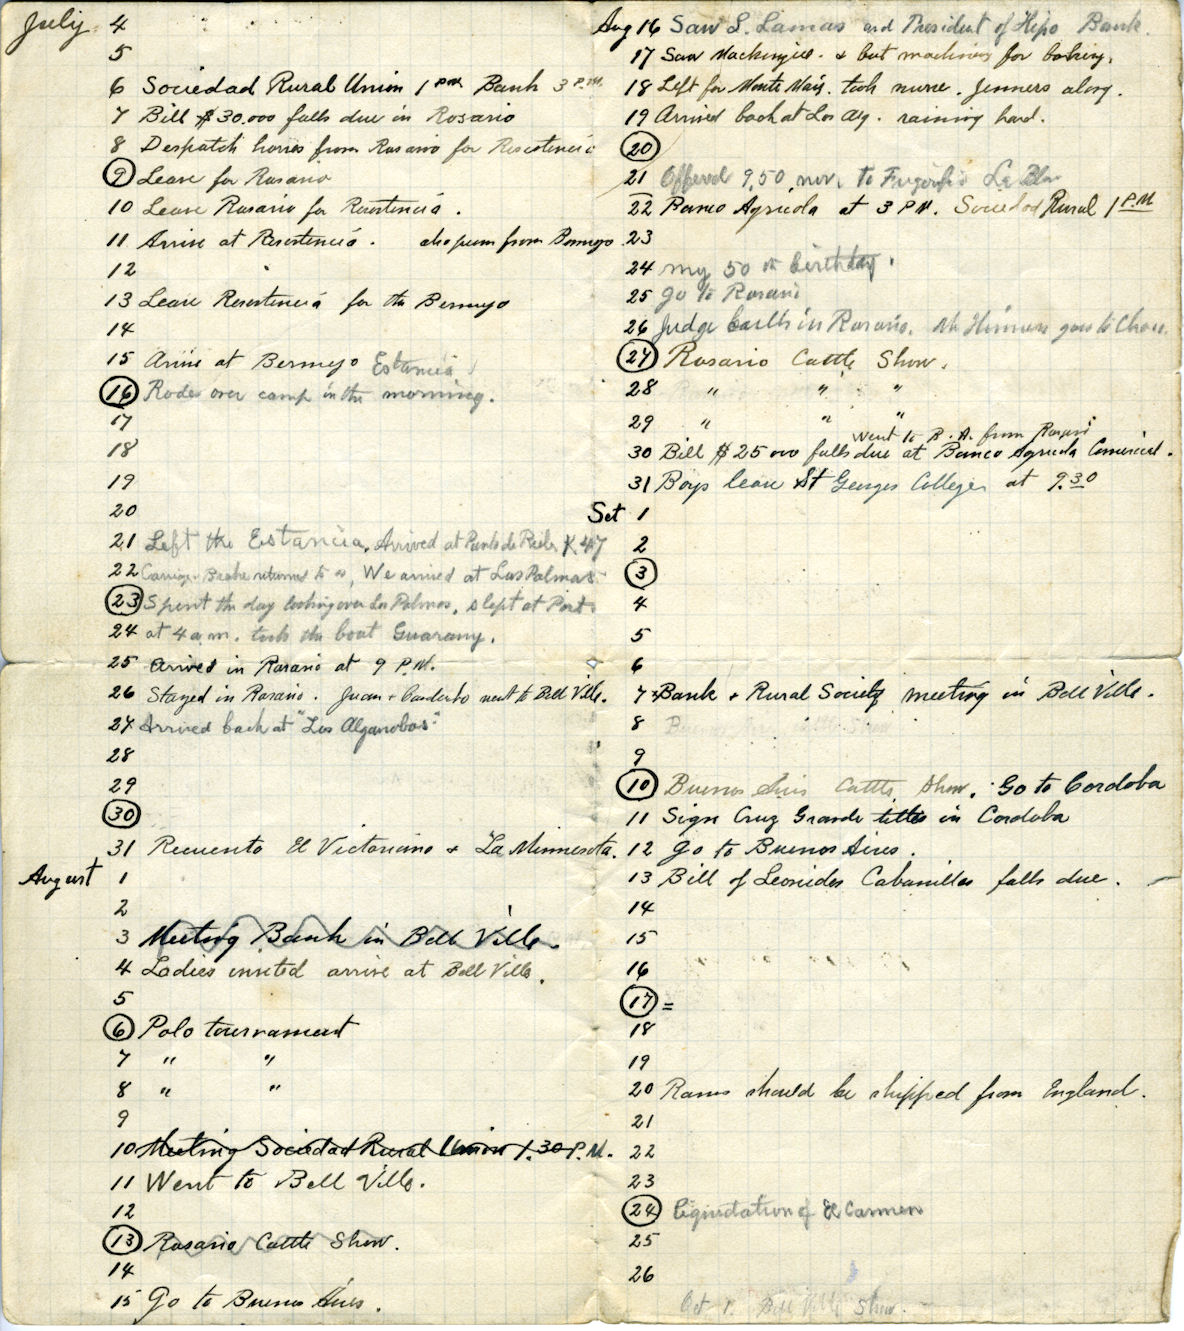 July 4
5
6 Sociedad Rural Union 1 P.M. Bank 3 P.M.
7 Bill $30,000 falls due in Rosario
8 Despatch horses from Rosario for Resistencia
9 Leave for Rosario
10 Leave Rosario for Resistencia.
11 Arrive at Resistencia. also peons from Bermejo
12
13 Leave Resistencia for the Bermejo
14
15 Arrive at Bermejo Estancia
16 Rode over camp in the morning.
17
18
19
20
21 Left the Estancia. Arrived at K 47
22 returned to us, We arrived at Las Palmas
23 Spent the day looking over Las Palmas, slept at Port.
24 at 4 a.m. took the boat Guarany.
25 Arrived in Rosario at 9 P.M.
26 Stayed in Rosario. Juan + went to Bell Ville.
27 Arrived back at "Los Algarrobos"
28
29
30
31 Recuento El Victoriano + La Minnesota.
August 1
2
3 Meeting Bank in Bell Ville.
4 Ladies invited arrive at Bell Ville.
5
6 Polo tournament
7 " "
8 " "
9
10 Meeting Sociedad Rural Union 1.30 P.M.
11 Went to Bell Ville.
12
13 Rosario Cattle Show.
14
15 Go to Buenos Aires.
Aug 16 Saw S. Lamas and President of Hipo Bank.
17 Saw + but machinery for boring.
18 Left for Monte Mais. took nurse. Jenners along.
19 Arrived back at Los Alg. raining hard.
20
21 Offered 9,50 nov. to Frigorifico La Blan
22 Banco Agricola at 3 P.M. Sociedad Rural 1 P.M
23
24 My 50th birthday.
25 Go to Rosario
26 Judge cattle in Rosario. goes to Chaco.
27 Rosario Cattle Show.
28 " " "
29 " " "
Went to B.A. from Rosario
30 Bill $25 000 falls due at Banco Agricola Comercial.
31 Boys leave St Georges College at 9.30
Set 1
2
3
4
5
6
7 Bank + Rural Society meeting in Bell Ville.
8 Buenos Aires Cattle Show
9
10 Buenos Aires Cattle Show. Go to Cordoba
11 Sign Cruz Grande titles in Cordoba
12 Go to Buenos Aires.
13 Bill of Leonides Cabanillas falls due.
14
15
16 " " " "
17 =
18
19
20 Rams should be shipped from England.
21
22
23
24 Liquidation of El Carmen
25
26
Oct 1. Bell Ville Show.